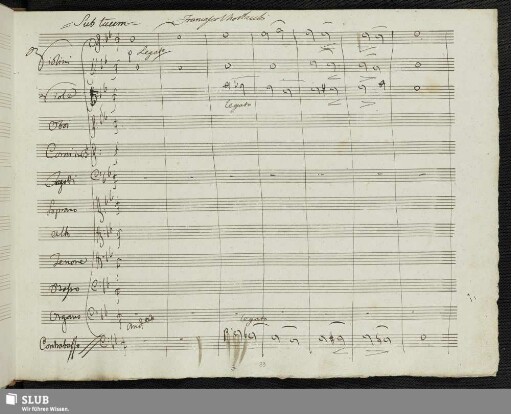 Sub tuum
Legato
Violini
Viole
legato
Oboi
Corni in B
Fagotti
Soprano
Alto
Tenore
Basso
Organo
legato
Contrabasso
SLUB
Wir führen Wissen.